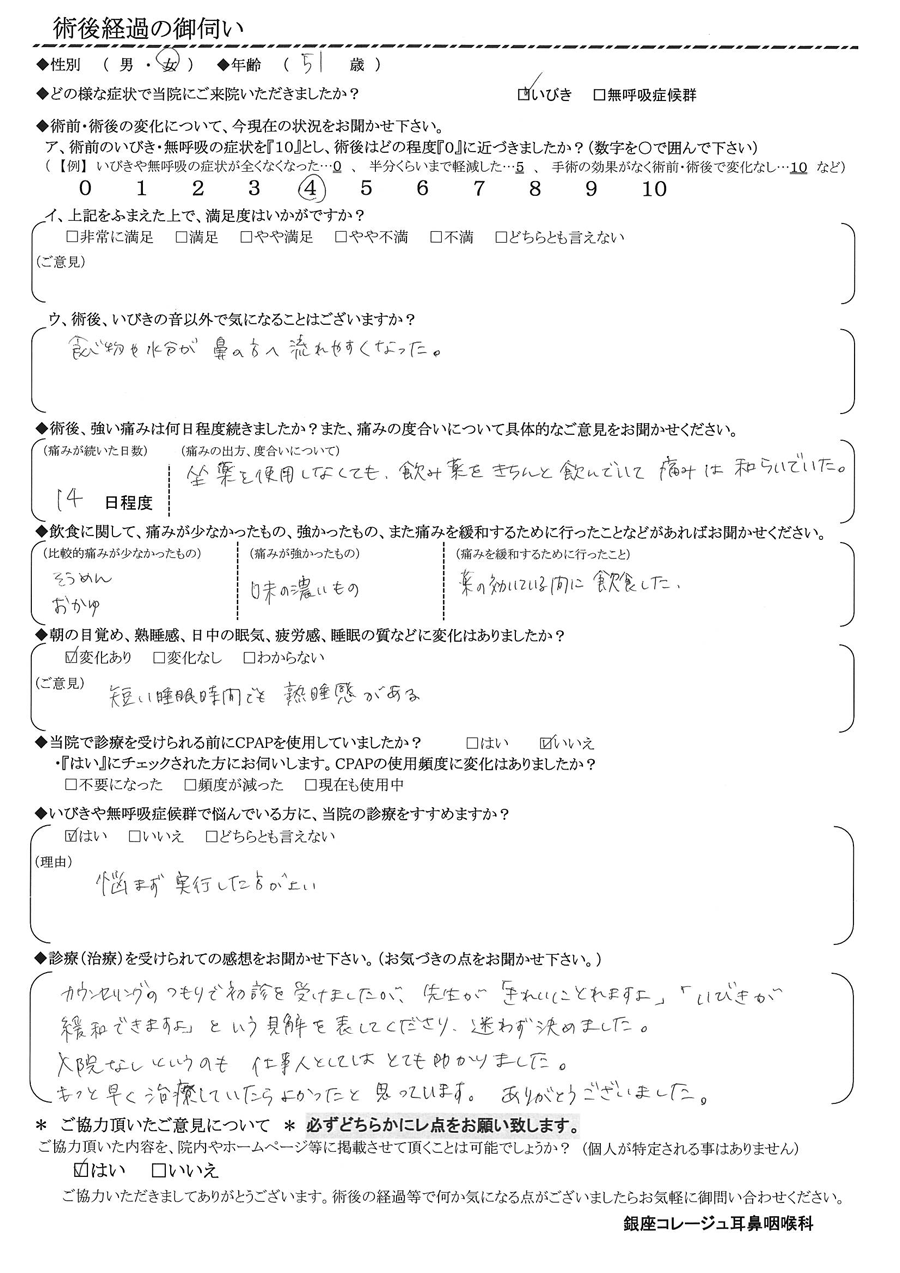 術後経過の御伺い
◆性別 （ 男 ・ 女 ） ◆年齢 （ 51 歳 ）
◆どの様な症状で当院にご来院いただきましたか？ ☑いびき □無呼吸症候群
◆術前・術後の変化について、今現在の状況をお聞かせ下さい。
ア、術前のいびき・無呼吸の症状を『10』とし、術後はどの程度『0』に近づきましたか？（数字を○で囲んで下さい）
（【例】いびきや無呼吸の症状が全くなくなった…0 、 半分くらいまで軽減した…5 、 手術の効果がなく術前・術後で変化なし…10 など）
0 1 2 3 ④ 5 6 7 8 9 10
イ、上記をふまえた上で、満足度はいかがですか？
□非常に満足 □満足 □やや満足 □やや不満 □不満 □どちらとも言えない
（ご意見）
ウ、術後、いびきの音以外で気になることはございますか？
食べ物や水分が 鼻の方へ 流れやすくなった。
◆術後、強い痛みは何日程度続きましたか？また、痛みの度合いについて具体的なご意見をお聞かせください。
（痛みが続いた日数） （痛みの出方、度合いについて）
坐薬を使用しなくても、飲み薬をきちんと飲んでいて 痛みは 和らいでいた。
14 日程度
◆飲食に関して、痛みが少なかったもの、強かったもの、また痛みを緩和するために行ったことなどがあればお聞かせください。
（比較的痛みが少なかったもの） （痛みが強かったもの） （痛みを緩和するために行ったこと）
そうめん 味の濃いもの 薬の効いている間に 飲食した。
おかゆ
◆朝の目覚め、熟睡感、日中の眠気、疲労感、睡眠の質などに変化はありましたか？
☑変化あり □変化なし □わからない
（ご意見） 短い睡眠時間でも 熟睡感がある
◆当院で診療を受けられる前にCPAPを使用していましたか？ □はい ☑いいえ
・『はい』にチェックされた方にお伺いします。CPAPの使用頻度に変化はありましたか？
□不要になった □頻度が減った □現在も使用中
◆いびきや無呼吸症候群で悩んでいる方に、当院の診療をすすめますか？
☑はい □いいえ □どちらとも言えない
（理由）
悩まず 実行した方が よい
◆診療（治療）を受けられての感想をお聞かせ下さい。（お気づきの点をお聞かせ下さい。）
カウンセリングのつもりで初診を受けましたが、先生が「きれいにとれますよ」「いびきが
緩和できますよ」という見解を表してくださり、迷わず決めました。
入院なしというのも 仕事人としては とても助かりました。
もっと早く治療していたらよかったと思っています。ありがとうございました。
＊ ご協力頂いたご意見について ＊ 必ずどちらかにレ点をお願い致します。
ご協力頂いた内容を、院内やホームページ等に掲載させて頂くことは可能でしょうか？（個人が特定される事はありません）
☑はい □いいえ
ご協力いただきましてありがとうございます。術後の経過等で何か気になる点がございましたらお気軽に御問い合わせください。
銀座コレージュ耳鼻咽喉科